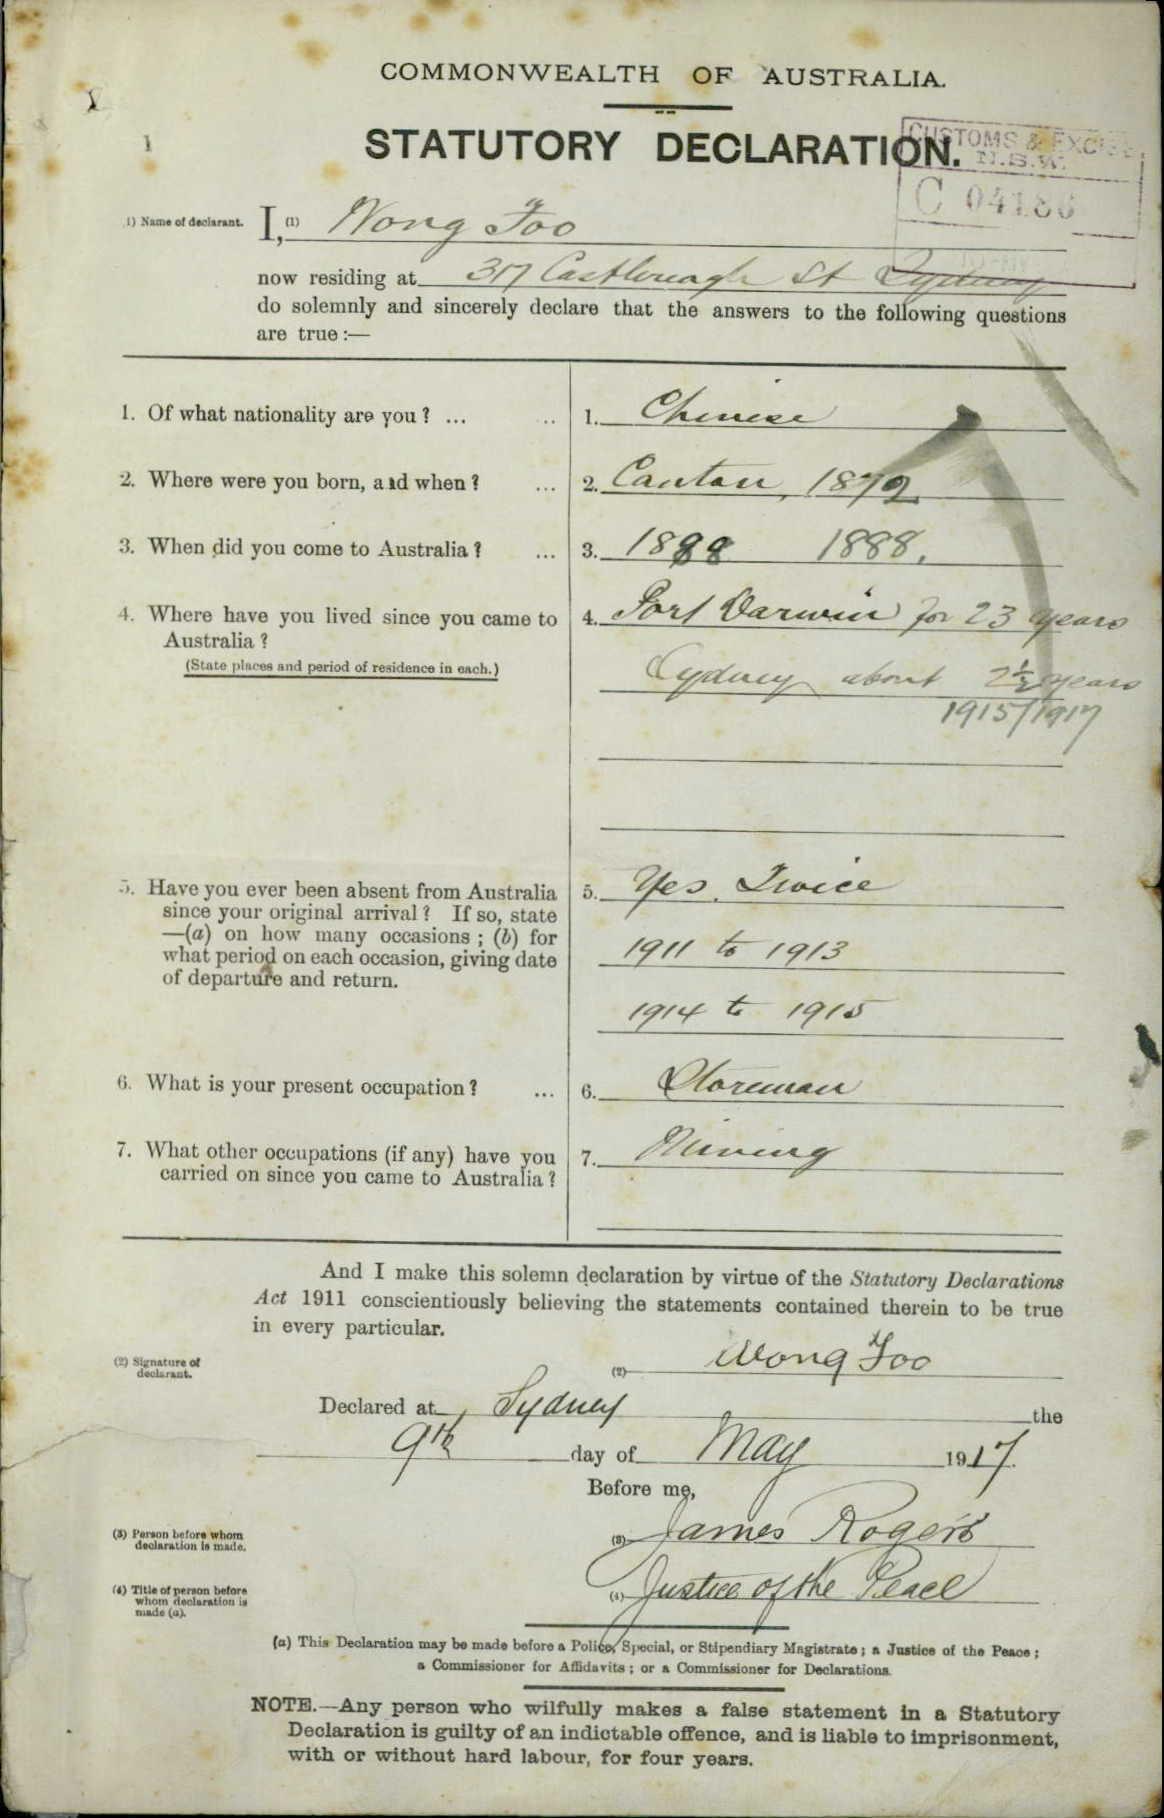 COMMONWEALTH OF AUSTRALIA.
STATUTORY DECLARATION.
CUSTOMS & EXCISE
N.S.W.
C 04186
(1) Name of declarant. I, (1) Wong Foo
now residing at 317 Castlereagh St Sydney
do solemnly and sincerely declare that the answers to the following questions
are true :—
1. Of what nationality are you ? ... .. 1. Chinese
2. Where were you born, and when ? ... 2. Canton, 1872
3. When did you come to Australia ? ... 3. 1888 1888.
4. Where have you lived since you came to 4. Port Darwin for 23 years
Australia ?
(State places and period of residence in each.) Sydney about 2½ years
1915/1917
5. Have you ever been absent from Australia 5. Yes. Twice
since your original arrival ? If so, state
—(a) on how many occasions ; (b) for 1911 to 1913
what period on each occasion, giving date
of departure and return.
1914 to 1915
6. What is your present occupation ? ... 6. Storeman
7. What other occupations (if any) have you 7. Mining
carried on since you came to Australia ?
And I make this solemn declaration by virtue of the Statutory Declarations
Act 1911 conscientiously believing the statements contained therein to be true
in every particular.
(2) Signature of declarant. (2) Wong Foo
Declared at Sydney the
9th day of May 1917.
Before me,
(3) Person before whom declaration is made. (3) James Rogers
(4) Title of person before whom declaration is made (a). (4) Justice of the Peace
(a) This Declaration may be made before a Police, Special, or Stipendiary Magistrate ; a Justice of the Peace ;
a Commissioner for Affidavits ; or a Commissioner for Declarations.
NOTE.—Any person who wilfully makes a false statement in a Statutory
Declaration is guilty of an indictable offence, and is liable to imprisonment,
with or without hard labour, for four years.